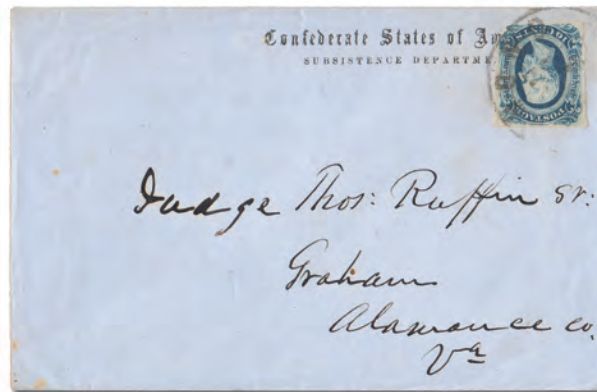 Confederate States of Am
SUBSISTENCE DEPARTME
POSTAGE
Judge Thos: Ruffin Sr:
Graham
Alamance Co.
Va